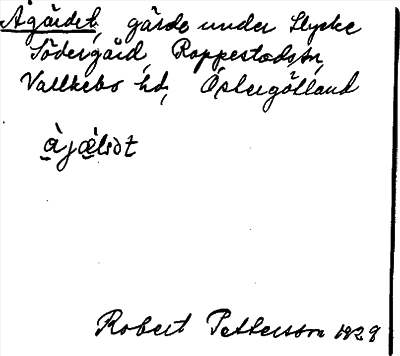 Ågärdet, gärde under Slycke
Södergård Rappestads sn,
Valkebo hd, Östergötland
Robert Pettersson 1929